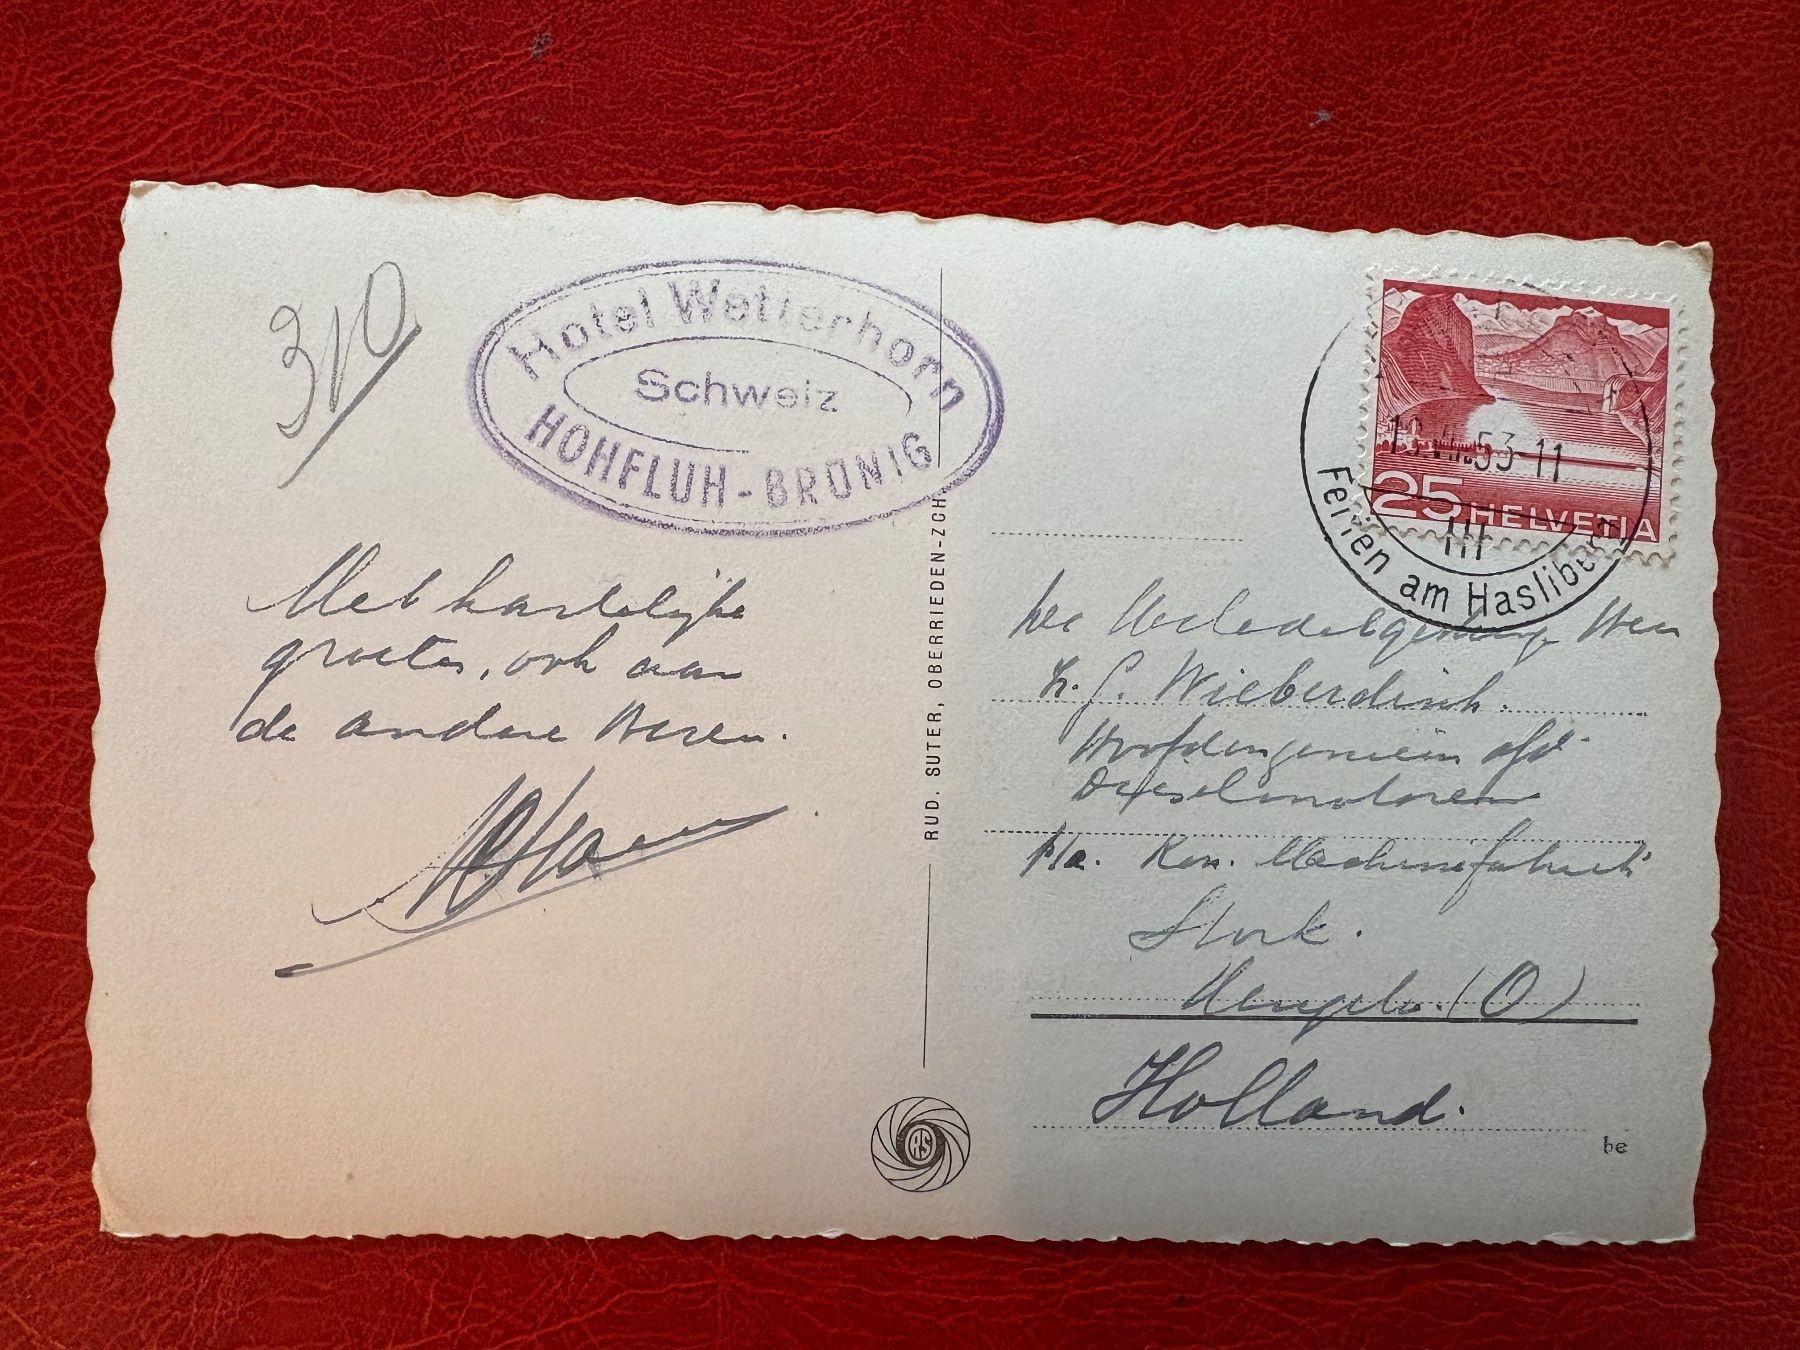 310
Hotel Wetterhorn
Schweiz
HOHFLUH-BRÜNIG
Met hartelijke
groeten, ook aan
de andere Heren.
RUD. SUTER, OBERRIEDEN-ZCH
RS
53-11
25 HELVETIA
III
Ferien am Hasliberg
Heer
Wieberdink.
Hoofdingenieur afd.
Dieselmotoren
Kon. Machinefabriek
Stork.
Hengelo. (O)
Holland.
he